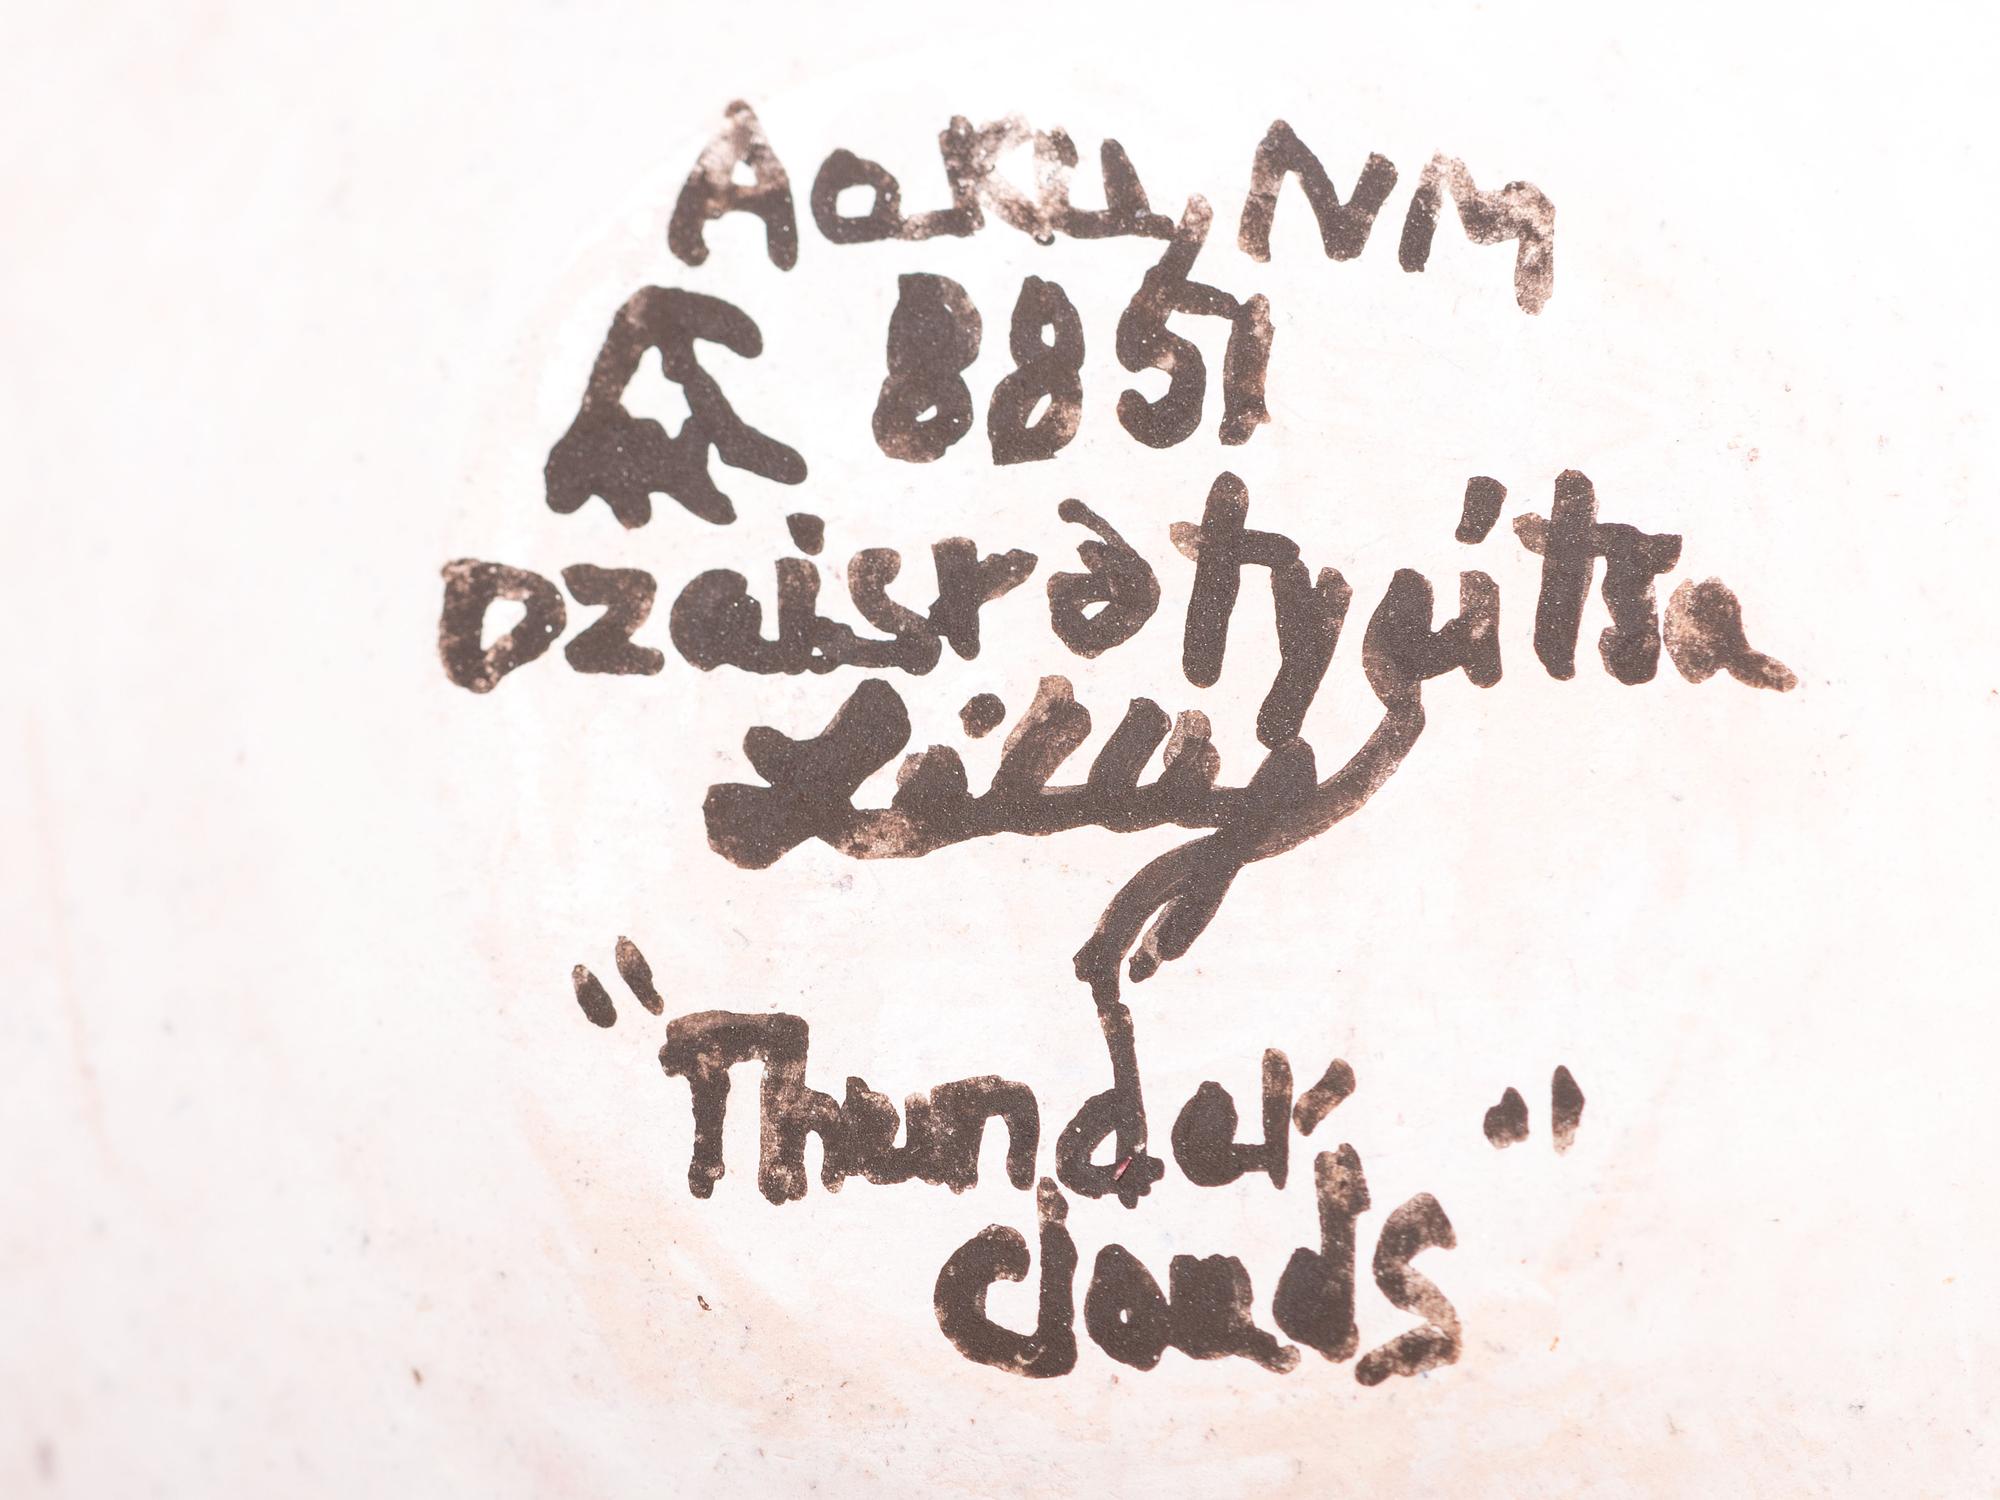 AaKu, NM
8851
Dzaisratyaitsa
Lilly
"Thunder, "
clouds